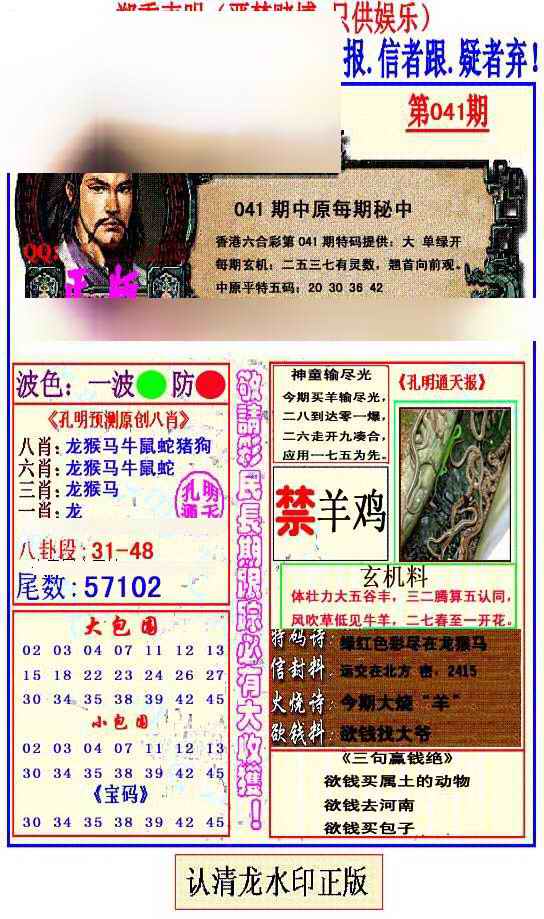 只供娱乐）
报.信者跟.疑者弃！
第041期
041期中原每期秘中
香港六合彩第041期特码提供：大 单绿开
每期玄机：二五三七有灵数，翘首向前观。
中原平特五码：20 30 36 42
QQ:
波色：一波 防
《孔明预测原创八肖》
八肖：龙猴马牛鼠蛇猪狗
六肖：龙猴马牛鼠蛇
三肖：龙猴马
一肖：龙
孔明
通天
八卦段：31-48
尾数：57102
大包围
02 03 04 07 11 12 13
15 18 22 23 24 26 27
30 34 35 38 39 42 45
小包围
02 03 04 07 11 12 13
30 34 35 38 39 42 45
《宝码》
30 34 35 38 39 42 45
敬請彩民長期跟踪必有大收獲！
神童输尽光
今期买羊输尽光，
二八到达零一爆，
二六走开九凑合，
应用一七五为先。
《孔明通天报》
禁羊鸡
玄机料
体壮力大五谷丰，三二腾算五认同，
风吹草低见牛羊，二七春至一开花。
特码诗：绿红色彩尽在龙猴马
信封料：运交在北方 密，2415
火烧诗：今期大烧“羊”
欲钱料：欲钱找大爷
《三句赢钱绝》
欲钱买属土的动物
欲钱去河南
欲钱买包子
认清龙水印正版